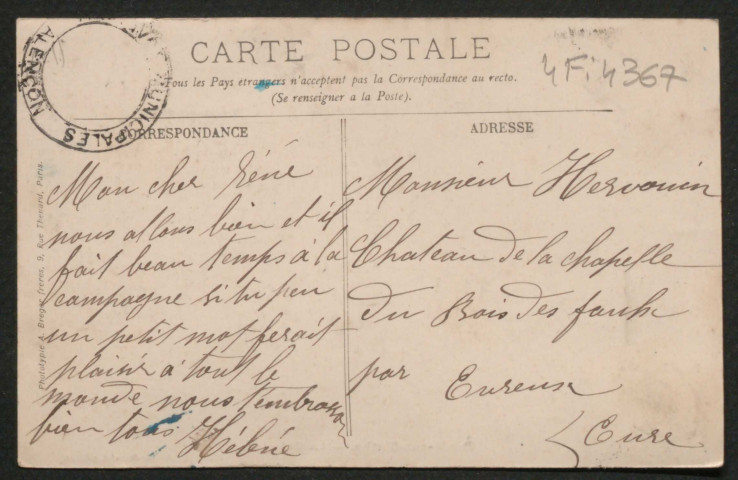 CARTE POSTALE
Tous les Pays étrangers n'acceptent pas la Correspondance au recto.
(Se renseigner a la Poste).
4Fi4367
MUNICIPALES
ALENÇON
CORRESPONDANCE
Mon cher Réné
nous allons bien et il
fait beau temps à la
campagne si tu peu
un petit mot ferait
plaisir à tout le
monde nous t'embrasso
bien tous Hélène
ADRESSE
Monsieur Hervouin
Chateau de la chapelle
du Bois des faulx
par Evreux
Eure
Phototypie A. Breger frères, 9, Rue Thénard, Paris.